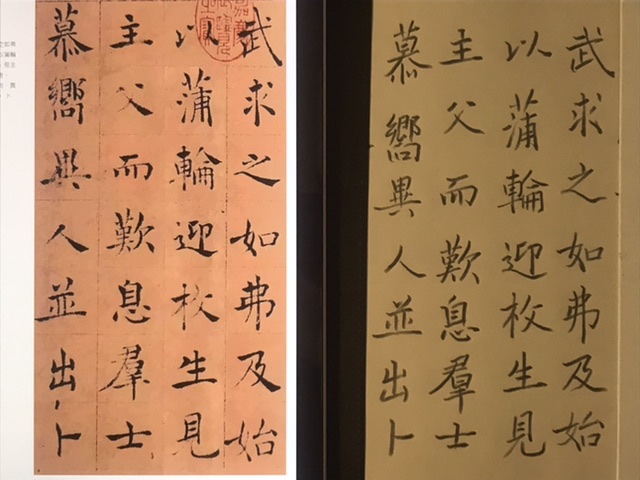 武求之如弗及始
以蒲輪迎枚生見
主父而歎息羣士
慕嚮異人並出卜
武求之如弗及始
以蒲輪迎枚生見
主父而歎息羣士
慕嚮異人並出卜